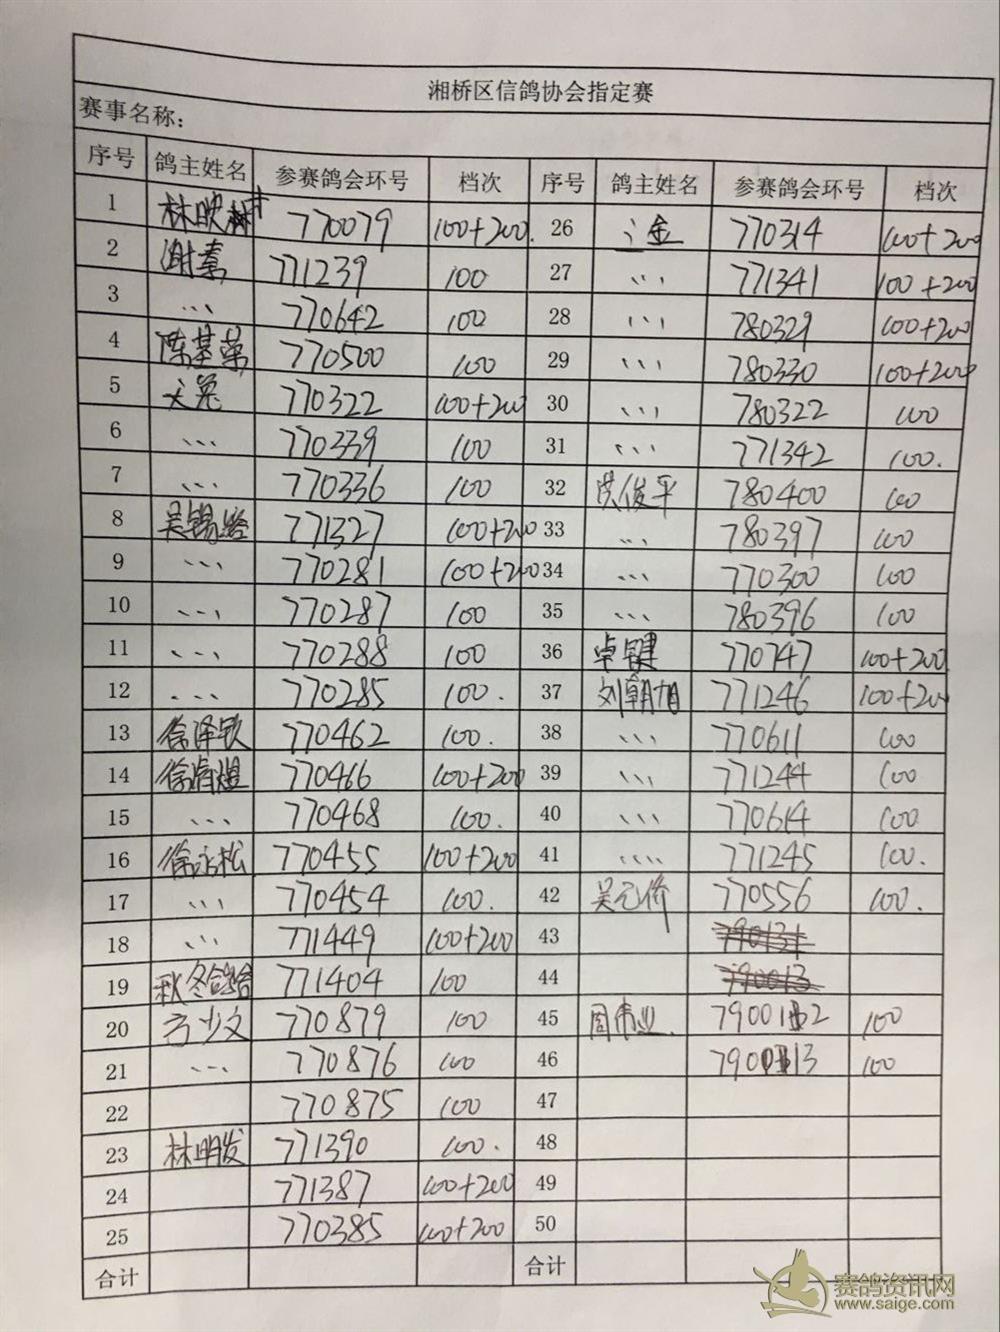 湘桥区信鸽协会指定赛
赛事名称:
序号 鸽主姓名 参赛鸽会环号 档次 序号 鸽主姓名 参赛鸽会环号 档次
1 林映 770079 100+200. 26 金 770314 100+200
2 谢 771239 100 27 、、、 771341 100+200
3 、、、 770642 100 28 、、、 780329 100+200
4 陈基荣 770500 100 29 、、、 780330 100+200
5 770322 100+200 30 、、、 780322 100
6 、、、 770339 100 31 、、、 771342 100.
7 、、、 770336 100 32 洪俊平 780400 100
8 吴锡 771327 100+200 33 、、、 780397 100
9 、、、 770281 100+200 34 、、、 770300 100
10 、、、 770287 100 35 、、、 780396 100
11 、、、 770288 100 36 卓键 770747 100+200
12 、、、 770285 100. 37 刘朝旭 771246 100+200
13 徐泽钦 770462 100. 38 、、、 770611 100
14 徐 煜 770466 100+200 39 、、、 771244 100
15 、、、 770468 100. 40 、、、 770614 100
16 徐永松 770455 100+200 41 、、、、 771245 100.
17 、、、 770454 100. 42 吴元侨 770556 100.
18 、、、 771449 100+200 43 790131
19 秋冬鸽舍 771404 100 44 790013
20 方少文 770879 100 45 周伟业. 100
21 、、、 770876 100 46 100
22 770875 100 47
23 林明发 771390 100. 48
24 771387 100+200 49
25 770385 100+200 50
合计 合计
赛鸽资讯网
www.saige.com